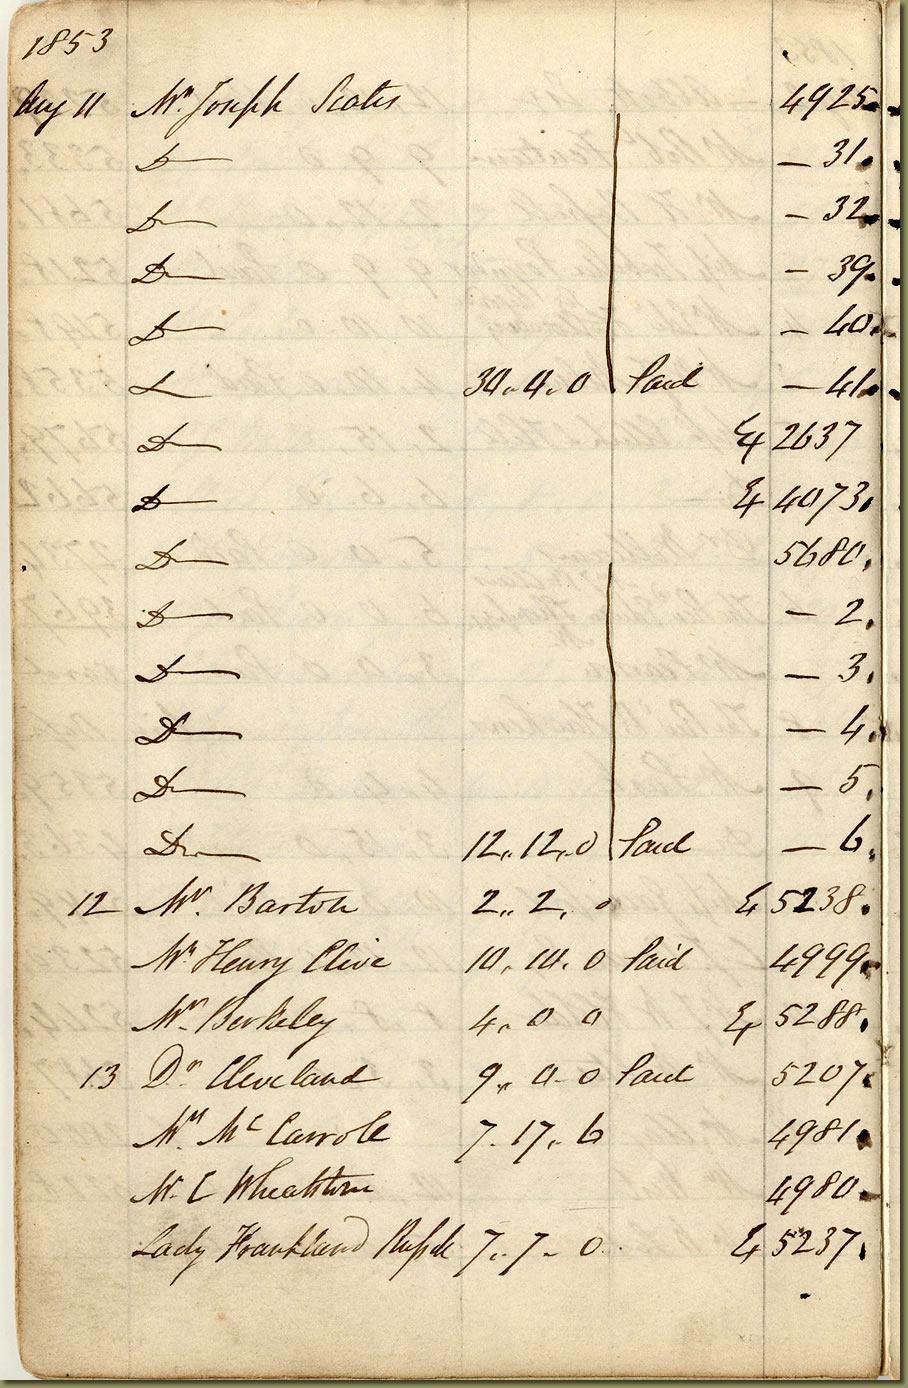 1853
Aug 11 Mr. Joseph Scates 4925
Do — 31.
Do — 32
Do — 39
Do — 40
Do 34. 4. 0 Paid — 41
Do Ex 2637
Do Ex 4073.
Do 5680.
Do — 2.
Do — 3.
Do — 4.
Do — 5.
Do 12. 12. 0 Paid — 6.
12 Mr. Barton 2. 2. 0 Ex 5238.
Mr. Henry Clive 10. 10. 0 Paid 4999
Mr. Berkeley 4. 0 0 Ex 5288.
13 Dr. Cleveland 9. 0 0 Paid 5207
Mr. Mc Carrole 7. 17. 6 4981.
Mr. C Wheatstone 4980.
Lady Frankland Russell 7. 7. 0 Ex 5237.